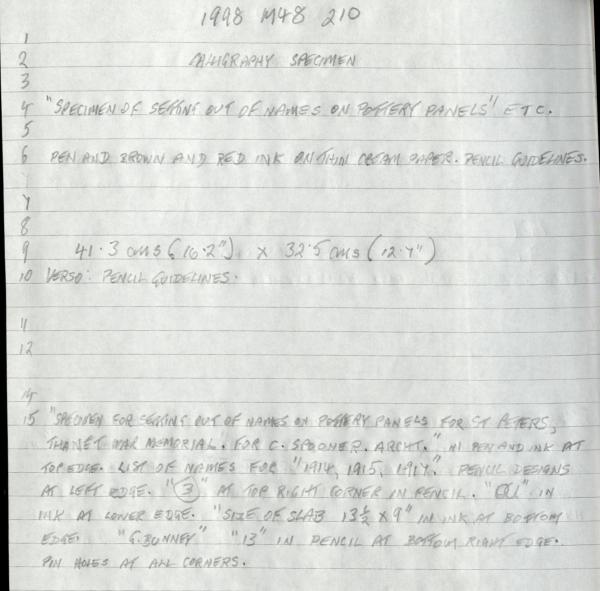 1998 M48 210
1
2 CALLIGRAPHY SPECIMEN
3
4 "SPECIMEN OF SETTING OUT OF NAMES ON POTTERY PANELS" ETC.
5
6 PEN AND BROWN AND RED INK ON THIN CREAM PAPER. PENCIL GUIDELINES.
7
8
9 41.3 cms (16.2") x 32.5 cms (12.7")
10 VERSO: PENCIL GUIDELINES.
11
12
14
15 "SPECIMEN FOR SETTING OUT OF NAMES ON POTTERY PANELS FOR ST PETERS,
THANET WAR MEMORIAL. FOR C. SPOONER. ARCHT." IN PEN AND INK AT
TOP EDGE. LIST OF NAMES FOR "1914, 1915, 1917." PENCIL DESIGNS
AT LEFT EDGE. "3" AT TOP RIGHT CORNER IN PENCIL. IN
INK AT LOWER EDGE. "SIZE OF SLAB 13½ x 9" IN INK AT BOTTOM
EDGE. "G. BUNNEY" "13" IN PENCIL AT BOTTOM RIGHT EDGE.
PIN HOLES AT ALL CORNERS.